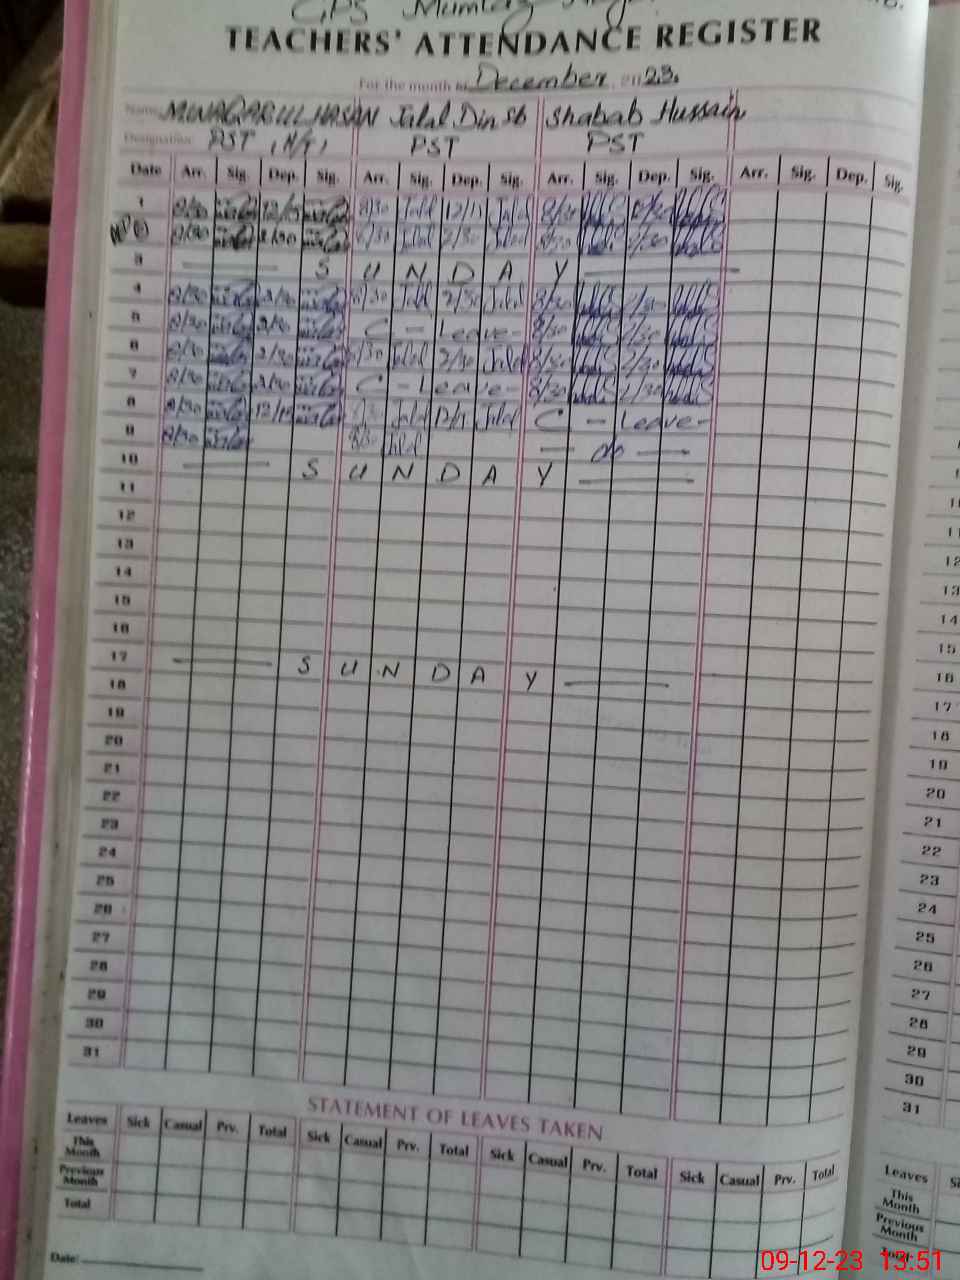 GPS Mumtaz
TEACHERS' ATTENDANCE REGISTER
For the month of December, 2023.
Name MUNAQAR UL HASAN Jalal Din sb Shabab Hussain
Designation PST (H/T) PST PST
Date Arr. Sig. Dep. Sig. Arr. Sig. Dep. Sig. Arr. Sig. Dep. Sig. Arr. Sig. Dep. Sig.
1 8/30 12/15 8/30 Jalal 12/15 Jalal 8/30 12/30
8/30 2/30 8/30 Jalal 2/30 Jalal 8/30 2/30
3 S U N D A Y
4 8/30 2/30 8/30 Jalal 2/30 Jalal 8/30 2/30
5 8/30 2/30 C - Leave - 8/30 2/30
6 8/30 2/30 8/30 Jalal 2/30 Jalal 8/30 2/30
7 8/30 2/30 C - Leave - 8/30 2/30
8 8/30 12/15 8/30 Jalal 12/15 Jalal C - Leave -
9 8/30 8/30 Jalal — do —
10 S U N D A Y
11
12
13
14
15
16
17 S U N D A Y
18
19
20
21
22
23
24
25
26
27
28
29
30
31
STATEMENT OF LEAVES TAKEN
Leaves Sick Casual Prv. Total Sick Casual Prv. Total Sick Casual Prv. Total Sick Casual Prv. Total
This Month
Previous Month
Total
Date:
12
13
14
15
16
17
18
19
20
21
22
23
24
25
26
27
28
29
30
31
Leaves
This Month
Previous Month
Total
09-12-23 13:51